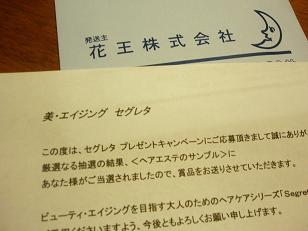 発送主
花王株式会社
美・エイジング セグレタ
この度は、セグレタ プレゼントキャンペーンにご応募頂きまして誠にありが
厳選なる抽選の結果、<ヘアエステのサンプル>に
あなた様がご当選されましたので、賞品をお送りさせていただきます。
ビューティ・エイジングを目指す大人のためのヘアケアシリーズ「Segre
くださいますよう、今後ともよろしくお願い申し上げます。